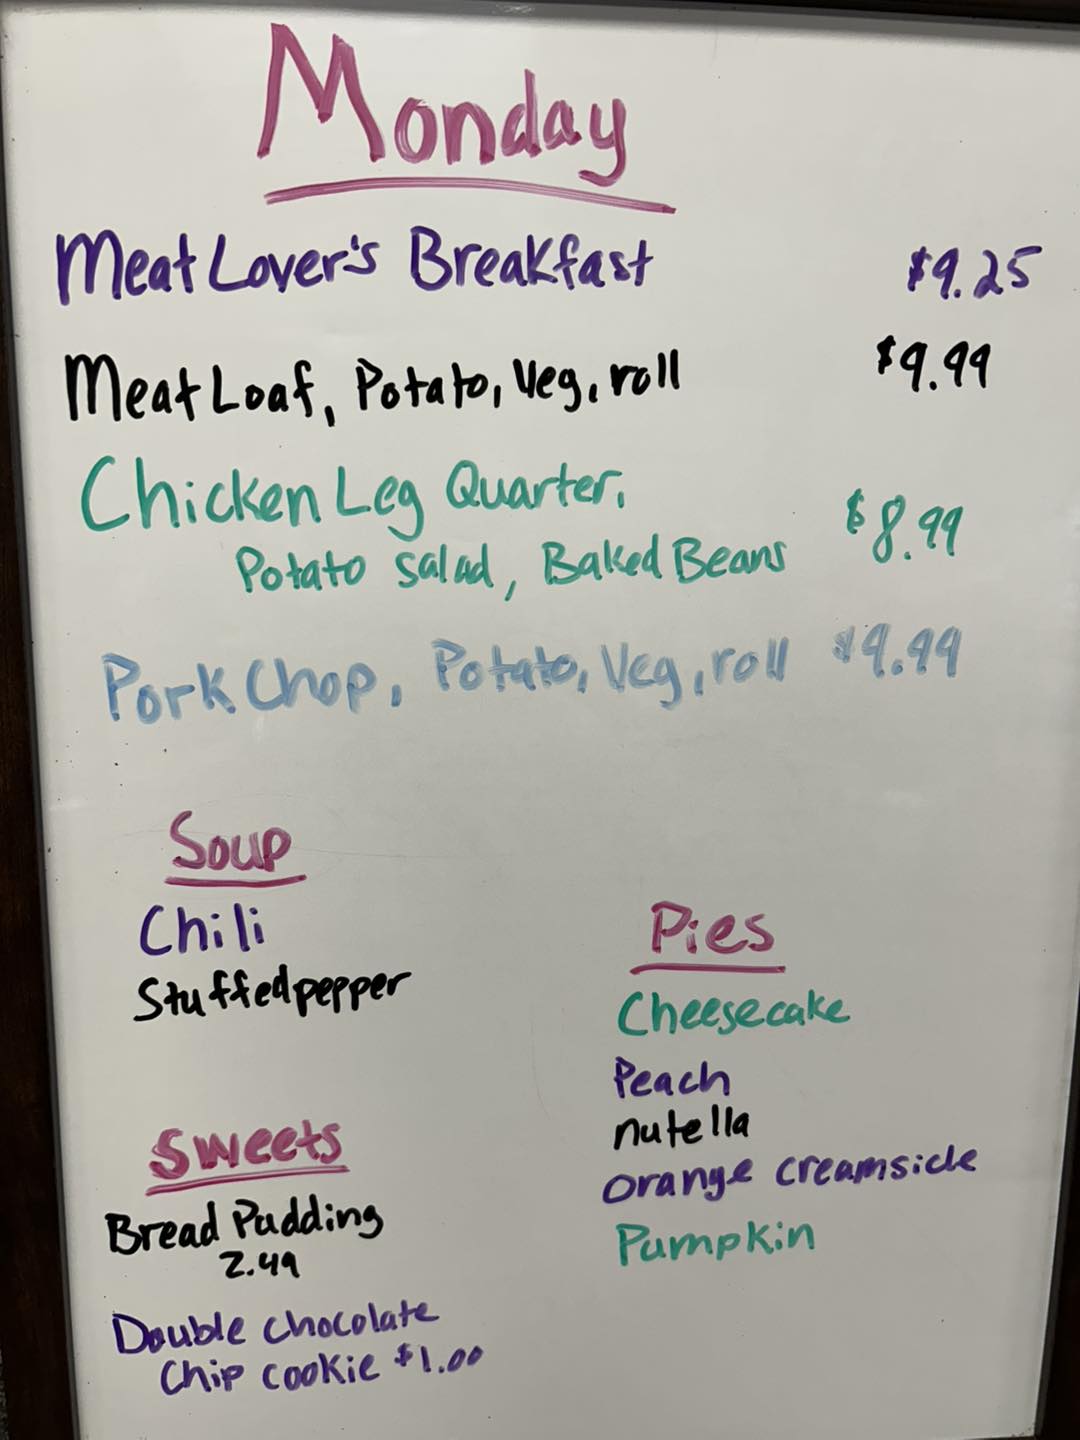 Monday
Meat Lover's Breakfast $9.25
Meat Loaf, Potato, Veg, roll $9.99
Chicken Leg Quarter,
Potato salad, Baked Beans $8.99
Pork Chop, Potato, Veg, roll $9.99
Soup
Chili
Stuffed pepper
Pies
Cheesecake
Peach
nutella
orange creamsicle
Pumpkin
Sweets
Bread Pudding
2.49
Double chocolate
Chip cookie $1.00